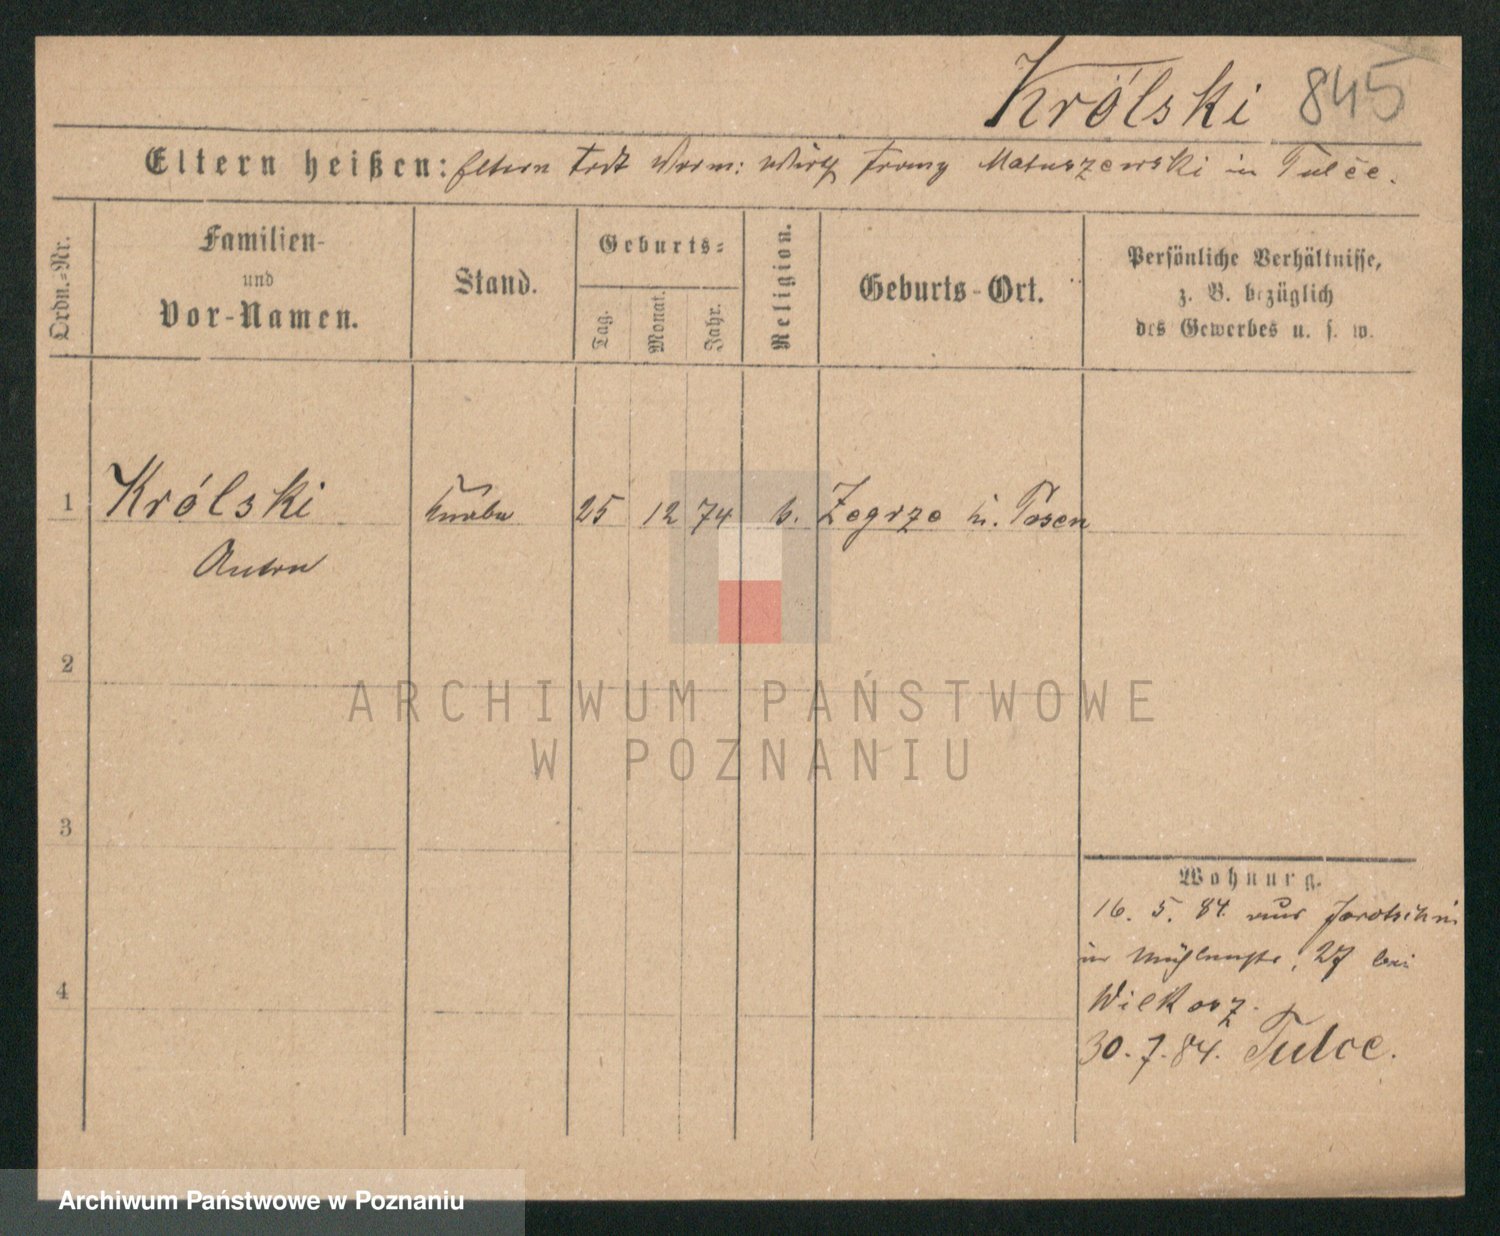 Królski 845
Eltern heißen: Eltern todt Vorm: Wirth Franz Matuszewski in Tulce.
Ordn.-Nr.
Familien-
und
Vor-Namen.
Stand.
Geburts-
Tag.
Monat.
Jahr.
Religion.
Geburts-Ort.
Persönliche Verhältnisse,
z. B. bezüglich
des Gewerbes u. s. w.
1 Królski Knabe 25 12 74 k. Zegrze b. Posen
Anton
2
3
4
Wohnung.
16. 5. 84. aus Jarotschin
in Mühlenstr. 27 bei
30. 7. 84. Tulce.
ARCHIWUM PAŃSTWOWE
W POZNANIU
Archiwum Państwowe w Poznaniu